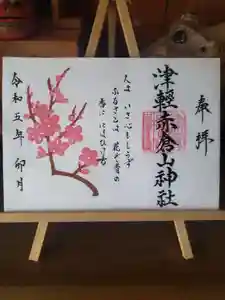 奉拝
津軽赤倉山神社
人はいさ心もしらず
ふるさとは花ぞ昔の
香ににほひける
令和五年 卯月